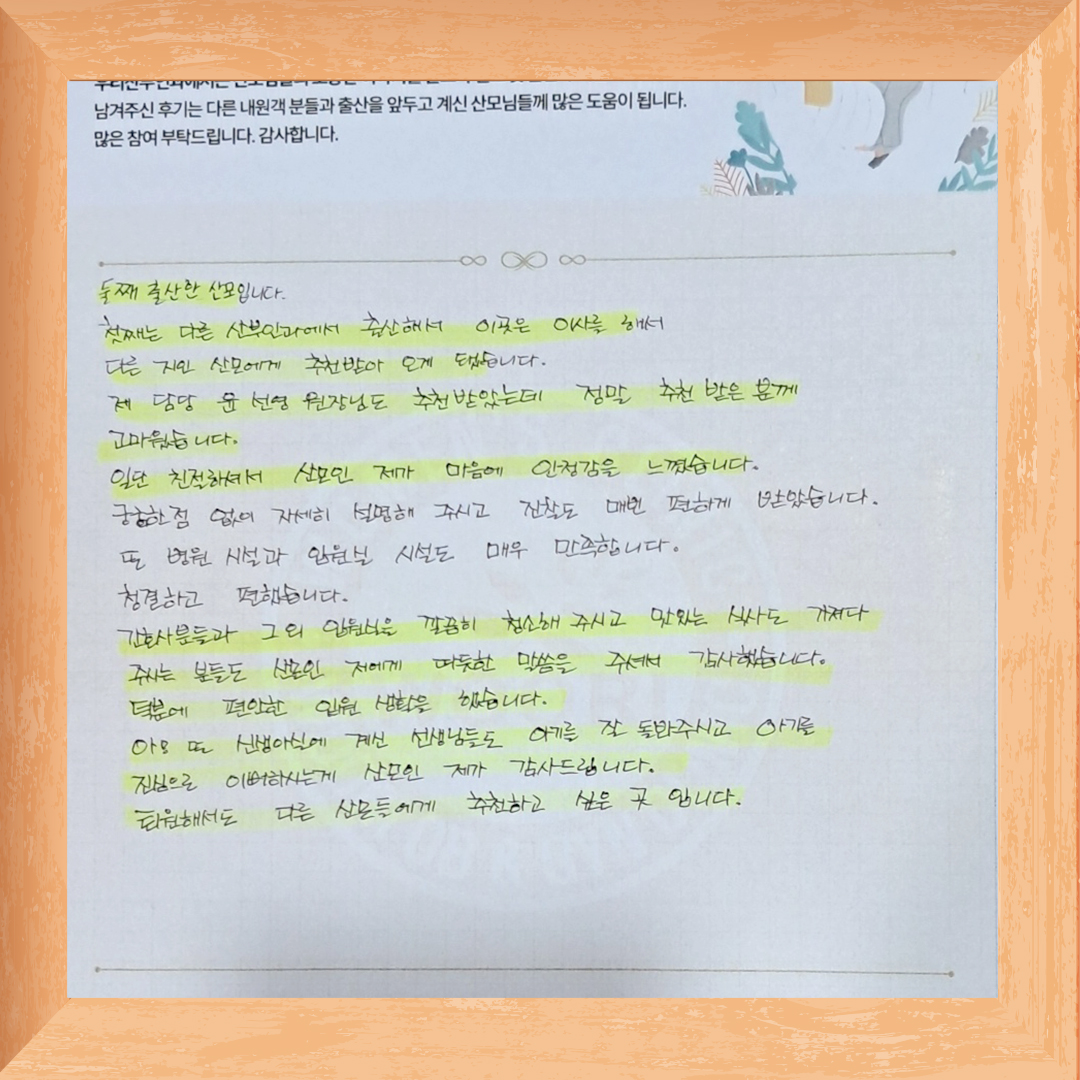 남겨주신 후기는 다른 내원객 분들과 출산을 앞두고 계신 산모님들께 많은 도움이 됩니다.
많은 참여 부탁드립니다. 감사합니다.
둘째 출산한 산모입니다.
첫째는 다른 산부인과에서 출산해서 이곳은 이사를 해서
다른 지인 산모에게 추천받아 오게 됐습니다.
제 담당 윤선영 원장님도 추천받았는데 정말 추천 받은 분께
고마웠습니다.
일단 친절하셔서 산모인 제가 마음에 안정감을 느꼈습니다.
궁금한점 없이 자세히 설명해 주시고 진찰도 매번 편하게 받았습니다.
또 병원 시설과 입원실 시설도 매우 만족합니다.
청결하고 편했습니다.
간호사분들과 그 외 입원실을 깔끔히 청소해 주시고 맛있는 식사도 가져다
주시는 분들도 산모인 저에게 따듯한 말씀을 주셔서 감사했습니다.
덕분에 편안한 입원 생활을 했습니다.
또 신생아실에 계신 선생님들도 아기를 잘 돌봐주시고 아기를
진심으로 이뻐하시는게 산모인 제가 감사드립니다.
퇴원해서도 다른 산모들에게 추천하고 싶은 곳 입니다.